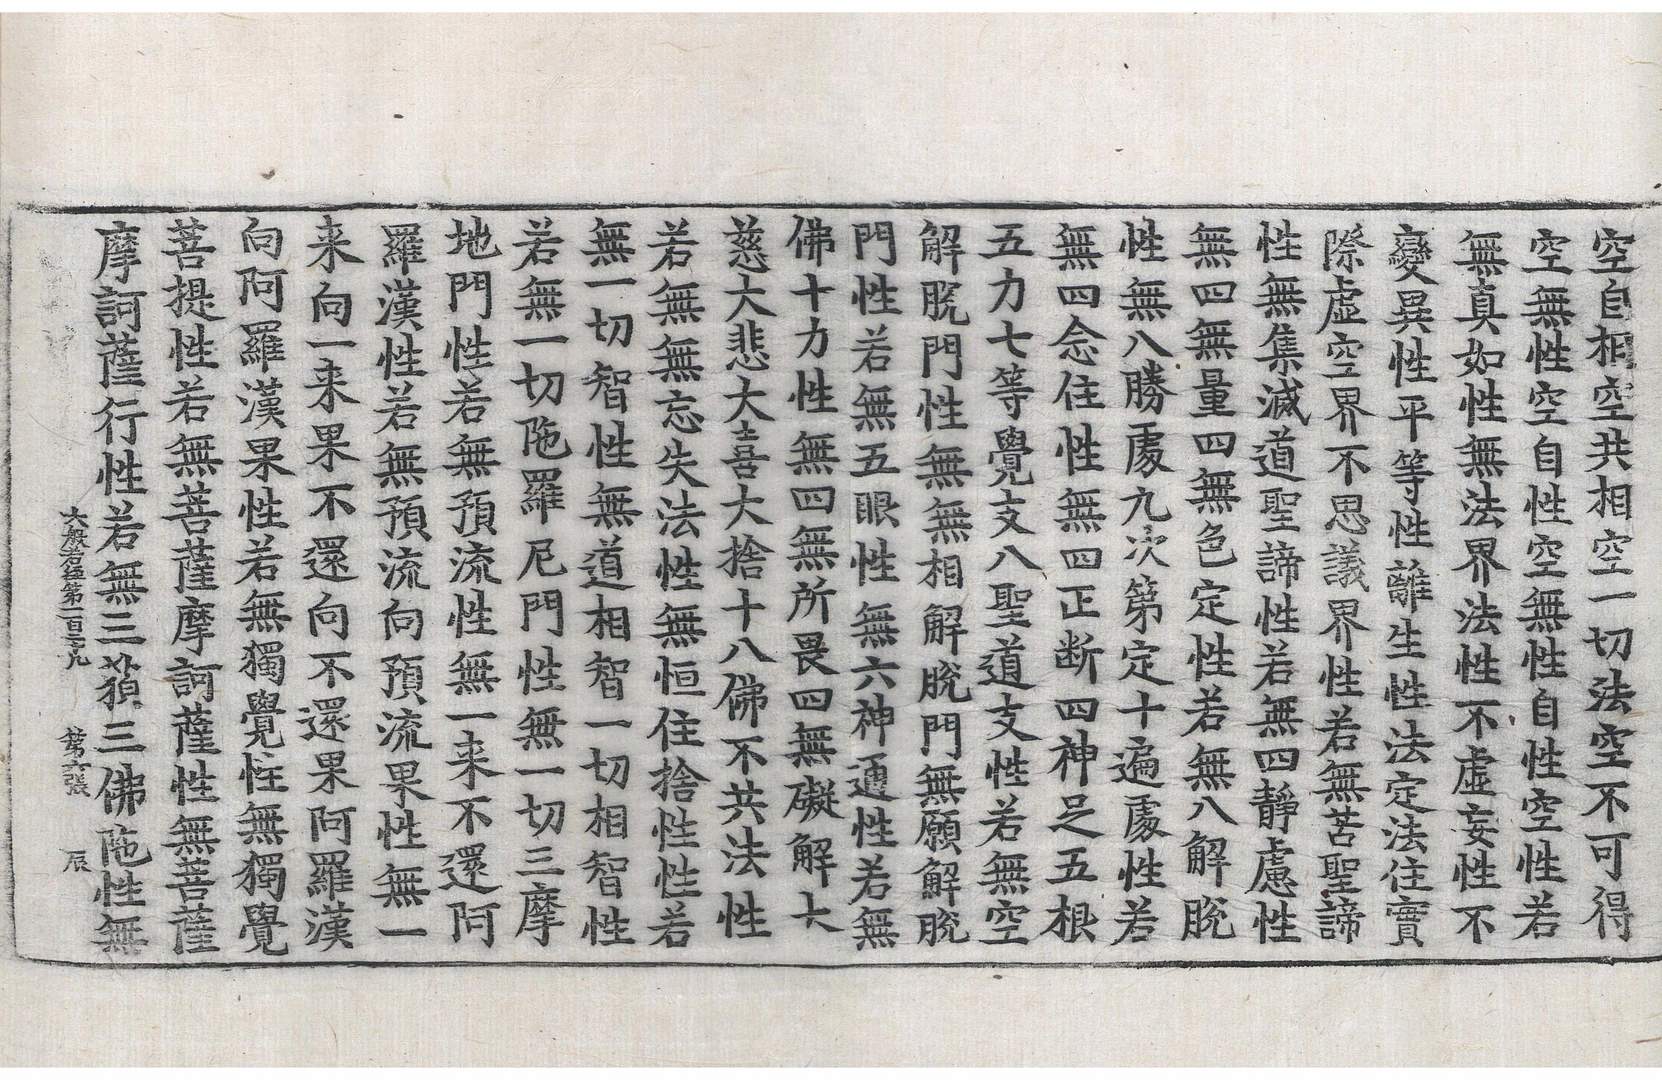 空自相空共相空一切法空不可得
空無性空自性空無性自性空性若
無真如性無法界法性不虛妄性不
變異性平等性離生性法定法住實
際虛空界不思議界性若無苦聖諦
性無集滅道聖諦性若無四靜慮性
無四無量四無色定性若無八解脫
性無八勝處九次第定十遍處性若
無四念住性無四正断四神足五根
五力七等覺支八聖道支性若無空
解脫門性無無相解脫門無願解脫
門性若無五眼性無六神通性若無
佛十力性無四無所畏四無礙解大
慈大悲大喜大捨十八佛不共法性
若無無忘失法性無恒住捨性性若
無一切智性無道相智一切相智性
若無一切陁羅尼門性無一切三摩
地門性若無預流性無一来不還阿
羅漢性若無預流向預流果性無一
来向一来果不還向不還果阿羅漢
向阿羅漢果性若無獨覺性無獨覺
菩提性若無菩薩摩訶薩性無菩薩
摩訶薩行性若無三藐三佛陁性無
大般若經第一百二九 第六張 辰